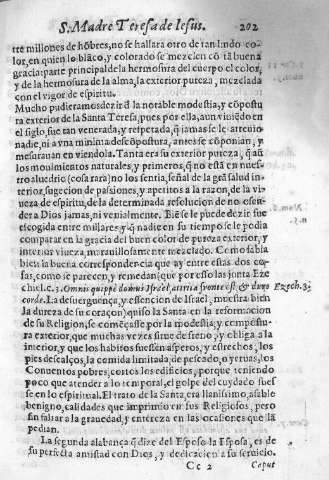 S. Madre Teresa de Iesus. 202
tre millones de hõbres, no se hallara otro de tan lindo co-
lor, en quien lo blãco, y colorado se mezclen cõ tã buena
gracia: parte principal de la hermosura del cuerpo el color,
y de la hermosura del alma, la exterior pureza, mezclada
con el vigor de espiritu.
Mucho pudieramos dezir d̃ la notable modestia, y cõpostu
ra exterior de la Santa Teresa, pues por ella, aun viuiẽdo en
el siglo, fue tan venerada, y respetada, q̃ jamas se le atreuio
nadie, ni a vna minima descõpostura, antes se cõponian, y
mesurauan en viendola. Tanta era su exterior pureza, q̃ aũ
los mouimientos naturales, y primeros, q̃ no està en nues-
tro aluedrio (cosa rara) no los sentia, señal de la grã salud in-
terior, sugecion de passiones, y apetitos a la razon, de la vi-
ueza de espiritu, de la determinada resolucion de no ofen-
der a Dios jamas, ni venialmente. Biẽ se le puede dezir fue
escogida entre millares, y q̃ nadie en su tiempo se le podia
comparar en la gracia del buen color de pureza exterior, y
interior viueza, marauillosamente mezclado. Como sabia
bien la buena correspondencia que ay entre estas dos co-
sas, como se parecen, y remedan (que por esso las jonta Eze
chiel c. 3 Omnis quippè domus Israel, attrita fronte est & duro Ezech. 3.
corde. La desuerguença, y essencion de Israel, muestra bien
la dureza de su coraçon) quiso la Santa en la reformacion
de su Religion, se começasse por la modestia, y compostu-
ra exterior, que muchas vezes sirue de freno, y obliga a la
interior, y que los habitos fuessen asperos, y estrechos, los
pies descalços, la comida limitada, de pescado, o yeruas, los
Conuentos pobres, cortos los edificios, porque teniendo
poco que atender a lo temporal, el golpe del cuydado fues
se en lo espiritual. El trato de la Santa era llanissimo, afable
benigno, calidades que imprimio en sus Religiosos, pero
sin faltar a la grauedad, y entereza en las ocasiones que la
pedian.
La segunda alabança q̃ dize del Esposo la Esposa, es de
su perfecta amistad con Dios, y dedicacion a su seruicio.
Cc 2 Caput